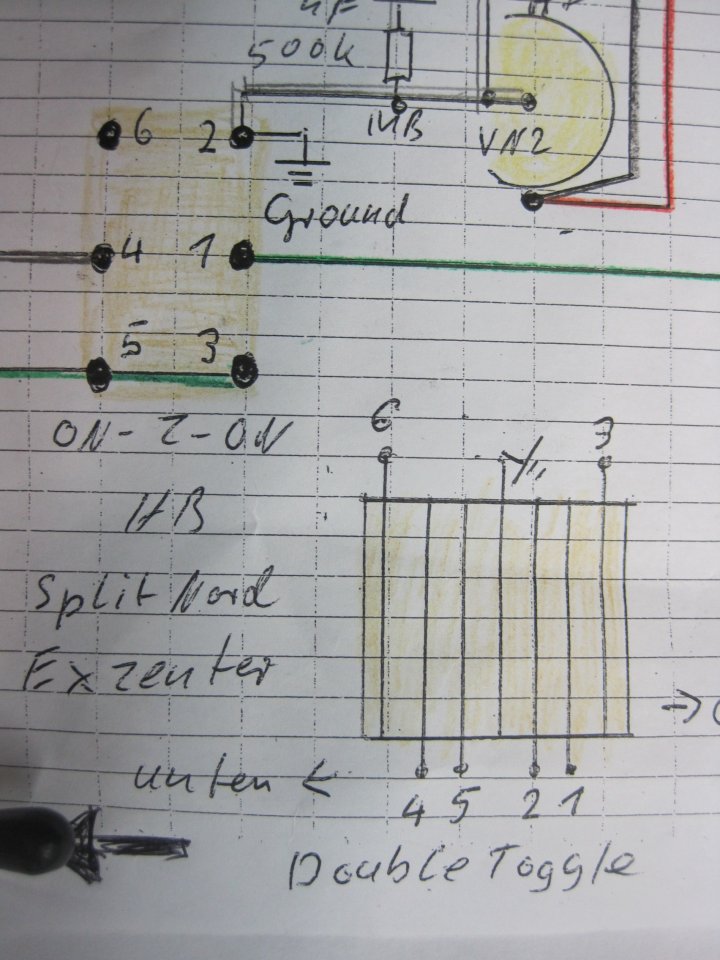 500k
6 2
Ground
4 1
5 3
ON-Z-ON
6 3
HB
Split Nord
Exzenter
unten ←
4 5 2 1
Double Toggle